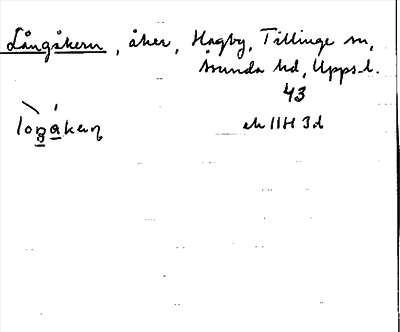 Långåkern, åker, Hagby, Tillinge sn,
Åsunda hd, Upps. l.
43
ek 11H 3d